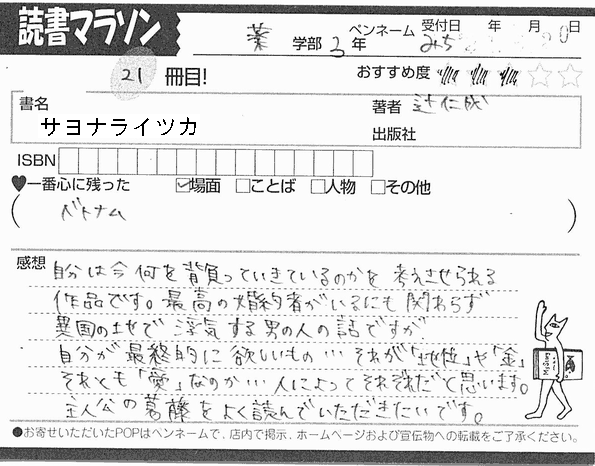 読書マラソン
薬 学部 3年 ペンネーム みち 受付日 年 月 日
21 冊目! おすすめ度
書名 著者 辻仁成
サヨナライツカ 出版社
ISBN
♥一番心に残った ☑場面 □ことば □人物 □その他
(ベトナム)
感想 自分は今何を背負っていきているのかを 考えさせられる
作品です。最高の婚約者がいるにも関わらず
異国の土地で 浮気する男の人の話ですが、
自分が最終的に欲しいもの…それが「地位」や「金」
それとも「愛」なのか…人によってそれぞれだと思います。
主人公の葛藤をよく読んでいただきたいです。
●お寄せいただいたPOPはペンネームで、店内で掲示、ホームページおよび宣伝物への転載をご了承ください。